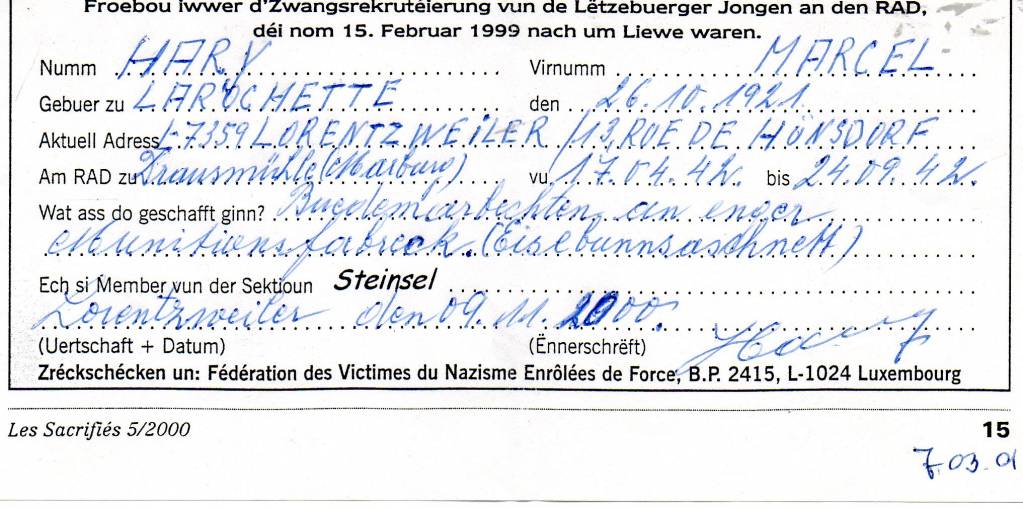 Froebou iwwer d'Zwangsrekrutéierung vun de Lëtzebuerger Jongen an den RAD,
déi nom 15. Februar 1999 nach um Liewe waren.
Numm HARY Virnumm MARCEL
Gebuer zu LAROCHETTE den 26.10.1921
Aktuell Adress L-7359 LORENTZWEILER /13, RUE DE HÜNSDORF
Am RAD zu Drausmühle (Marburg) vu 17.04.42. bis 24.09.42.
Wat ass do geschafft ginn? Buedemarbechten an enger
Munitionsfabreck. (Eisebunnsaschnett)
Ech si Member vun der Sektioun Steinsel
Lorentzweiler den 09.11.2000.
(Uertschaft + Datum) (Ënnerschrëft) Hary
Zréckschécken un: Fédération des Victimes du Nazisme Enrôlées de Force, B.P. 2415, L-1024 Luxembourg
Les Sacrifiés 5/2000 15
7.03.01